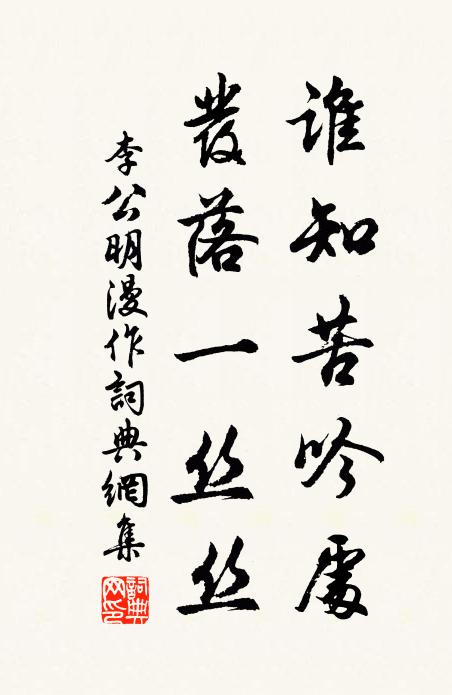 誰知苦吟處
發落一丝丝
李公明漫作詞典網集
詞典
网印